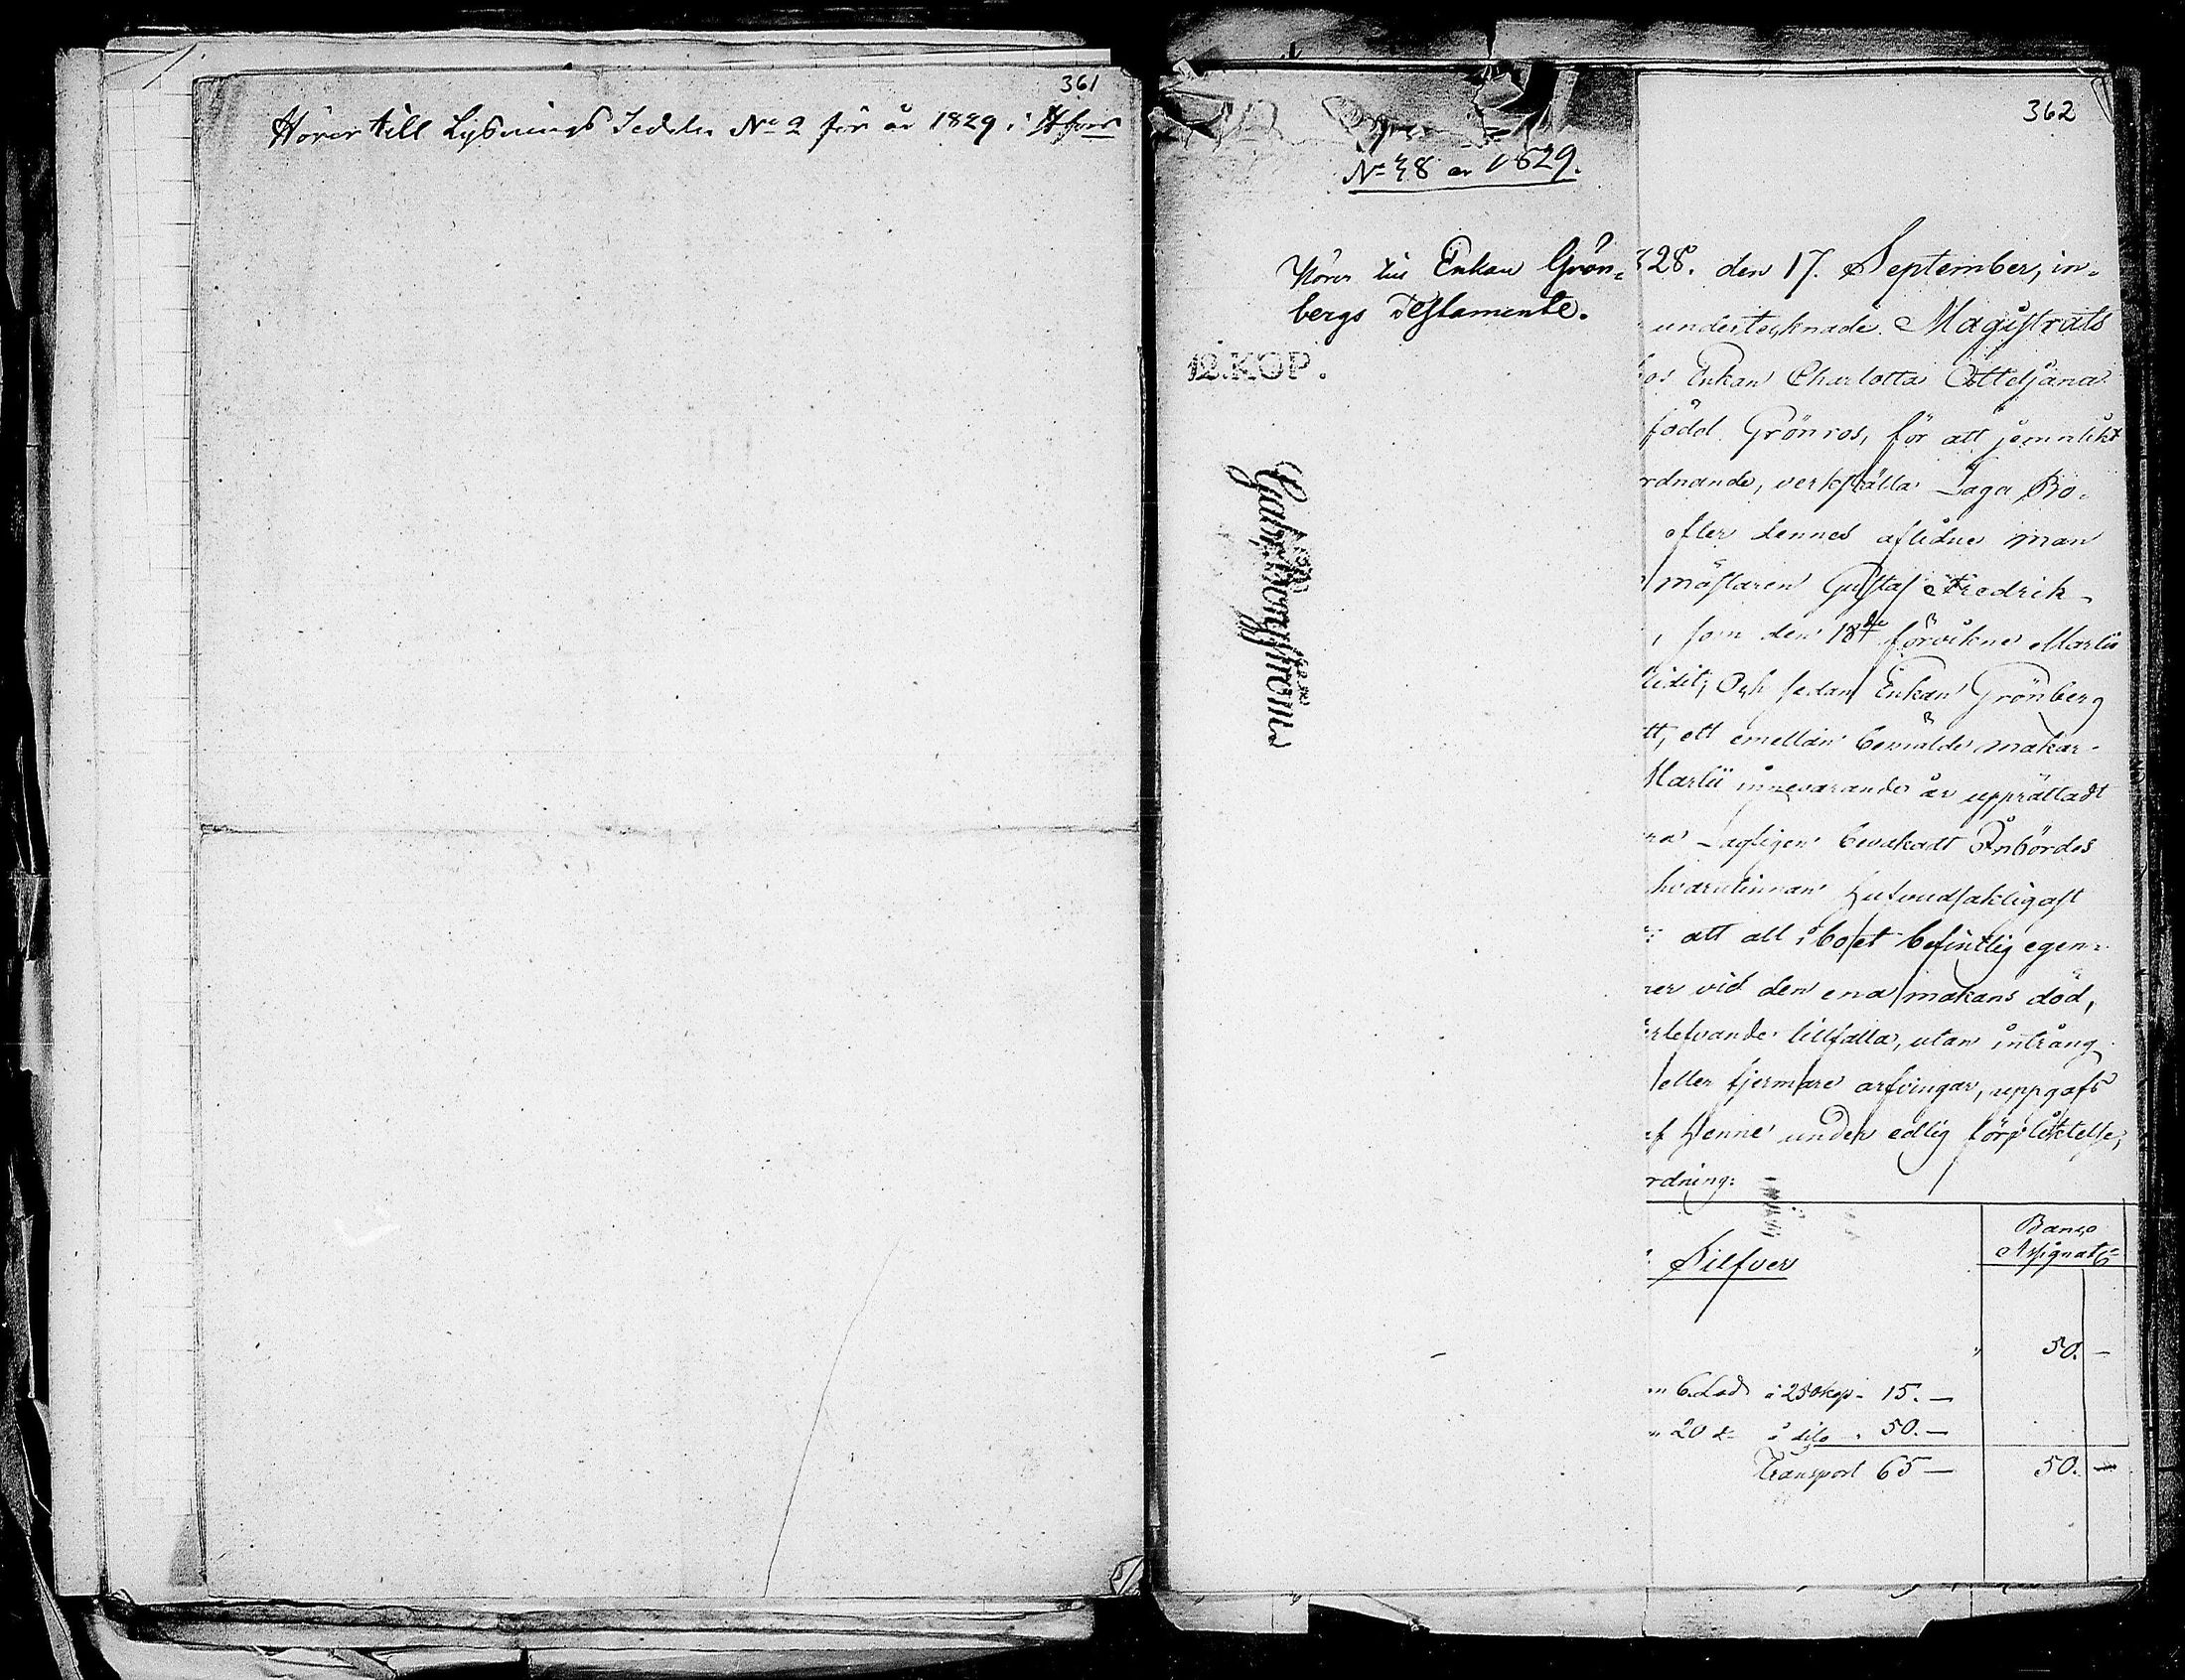 361
Hörer till Lysnings Sedeln No 2 för år 1829 i Hfors
No 48 år 1829.
Hörer till Enkan Grön-
bergs Testamente.
12.KOP.
362
828. den 17. September, in-
undertecknade Magistrats
hos Enkan Charlotta Otteljana
född Grönros, för att jemnlikt
rdnande, verkställa Laga Bo-
efter dennes aflidne man
mästaren Gustaf Fredrik
, som den 18de förvikne Martii
lidit; Och sedan Enkan Grönberg
tt, ett emellan bemälde makar
Martii innevarande år upprättadt
na Lagligen bevakadt Inbördes
hvarutinnan hufvudsakligast
att all i boet befintlig egen-
ner vid den ena makans död,
erlefvande tillfalla, utan intrång
eller fjermare arfvingar, uppgafs
af Henne under edlig förpliktelse,
rdning:
Banco
Assignat
Silfver
50. —
6. Lod à 250 kop. 15. —
20 d: à dito . 50. —
Transport 65 — 50. —